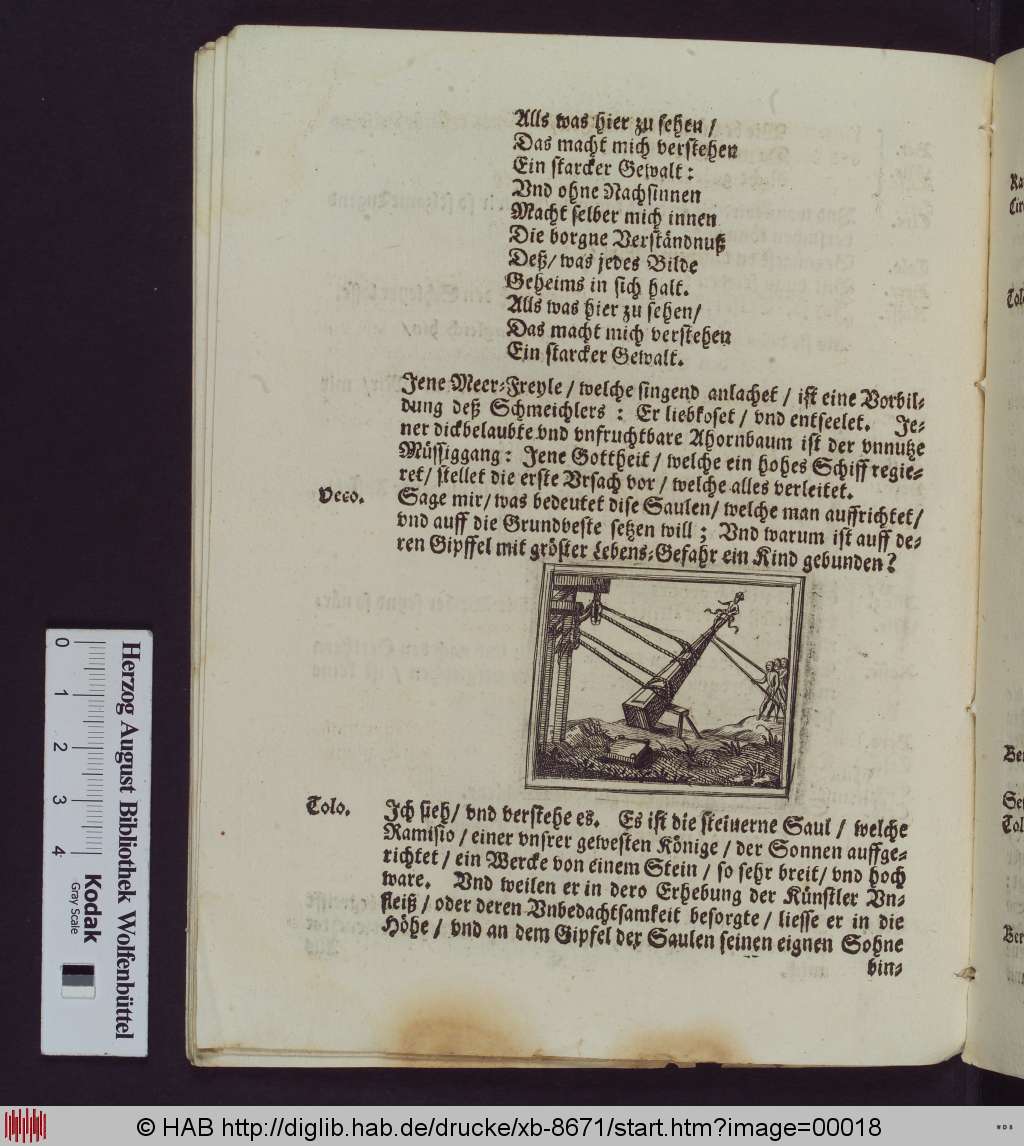 Alls was hier zu sehen /
Das macht mich verstehen
Ein starcker Gewalt:
Vnd ohne Nachsinnen
Macht selber mich innen
Die borgne Verständnuß
Deß/ was jedes Bilde
Geheims in sich halt.
Alls was hier zu sehen/
Das macht mich verstehen
Ein starcker Gewalt.
Jene Meer-Freyle / welche singend anlachet / ist eine Vorbil-
dung deß Schmeichlers : Er liebkoset / vnd entseelet. Je-
ner dickbelaubte vnd vnfruchtbare Ahornbaum ist der vnnutze
Müssiggang: Jene Gottheit / welche ein hohes Schiff regie-
ret/ stellet die erste Vrsach vor / welche alles verleitet.
Vcco. Sage mir/ was bedeutet dise Saulen/ welche man auffrichtet/
vnd auff die Grundveste setzen will ; Vnd warum ist auff de-
ren Gipffel mit gröster Lebens-Gefahr ein Kind gebunden?
Tolo. Ich sieh/ vnd verstehe es. Es ist die steinerne Saul / welche
Ramisio / einer vnsrer gewesten Könige / der Sonnen auffge-
richtet / ein Wercke von einem Stein / so sehr breit/ vnd hoch
ware. Vnd weilen er in dero Erhebung der Künstler Vn-
fleiß / oder deren Vnbedachtsamkeit besorgte / liesse er in die
Höhe / vnd an dem Gipfel der Saulen seinen eignen Sohne
bin-
0
1
2
3
4
Herzog August Bibliothek Wolfenbüttel
Kodak
Gray Scale
Tolo
© HAB http://diglib.hab.de/drucke/xb-8671/start.htm?image=00018